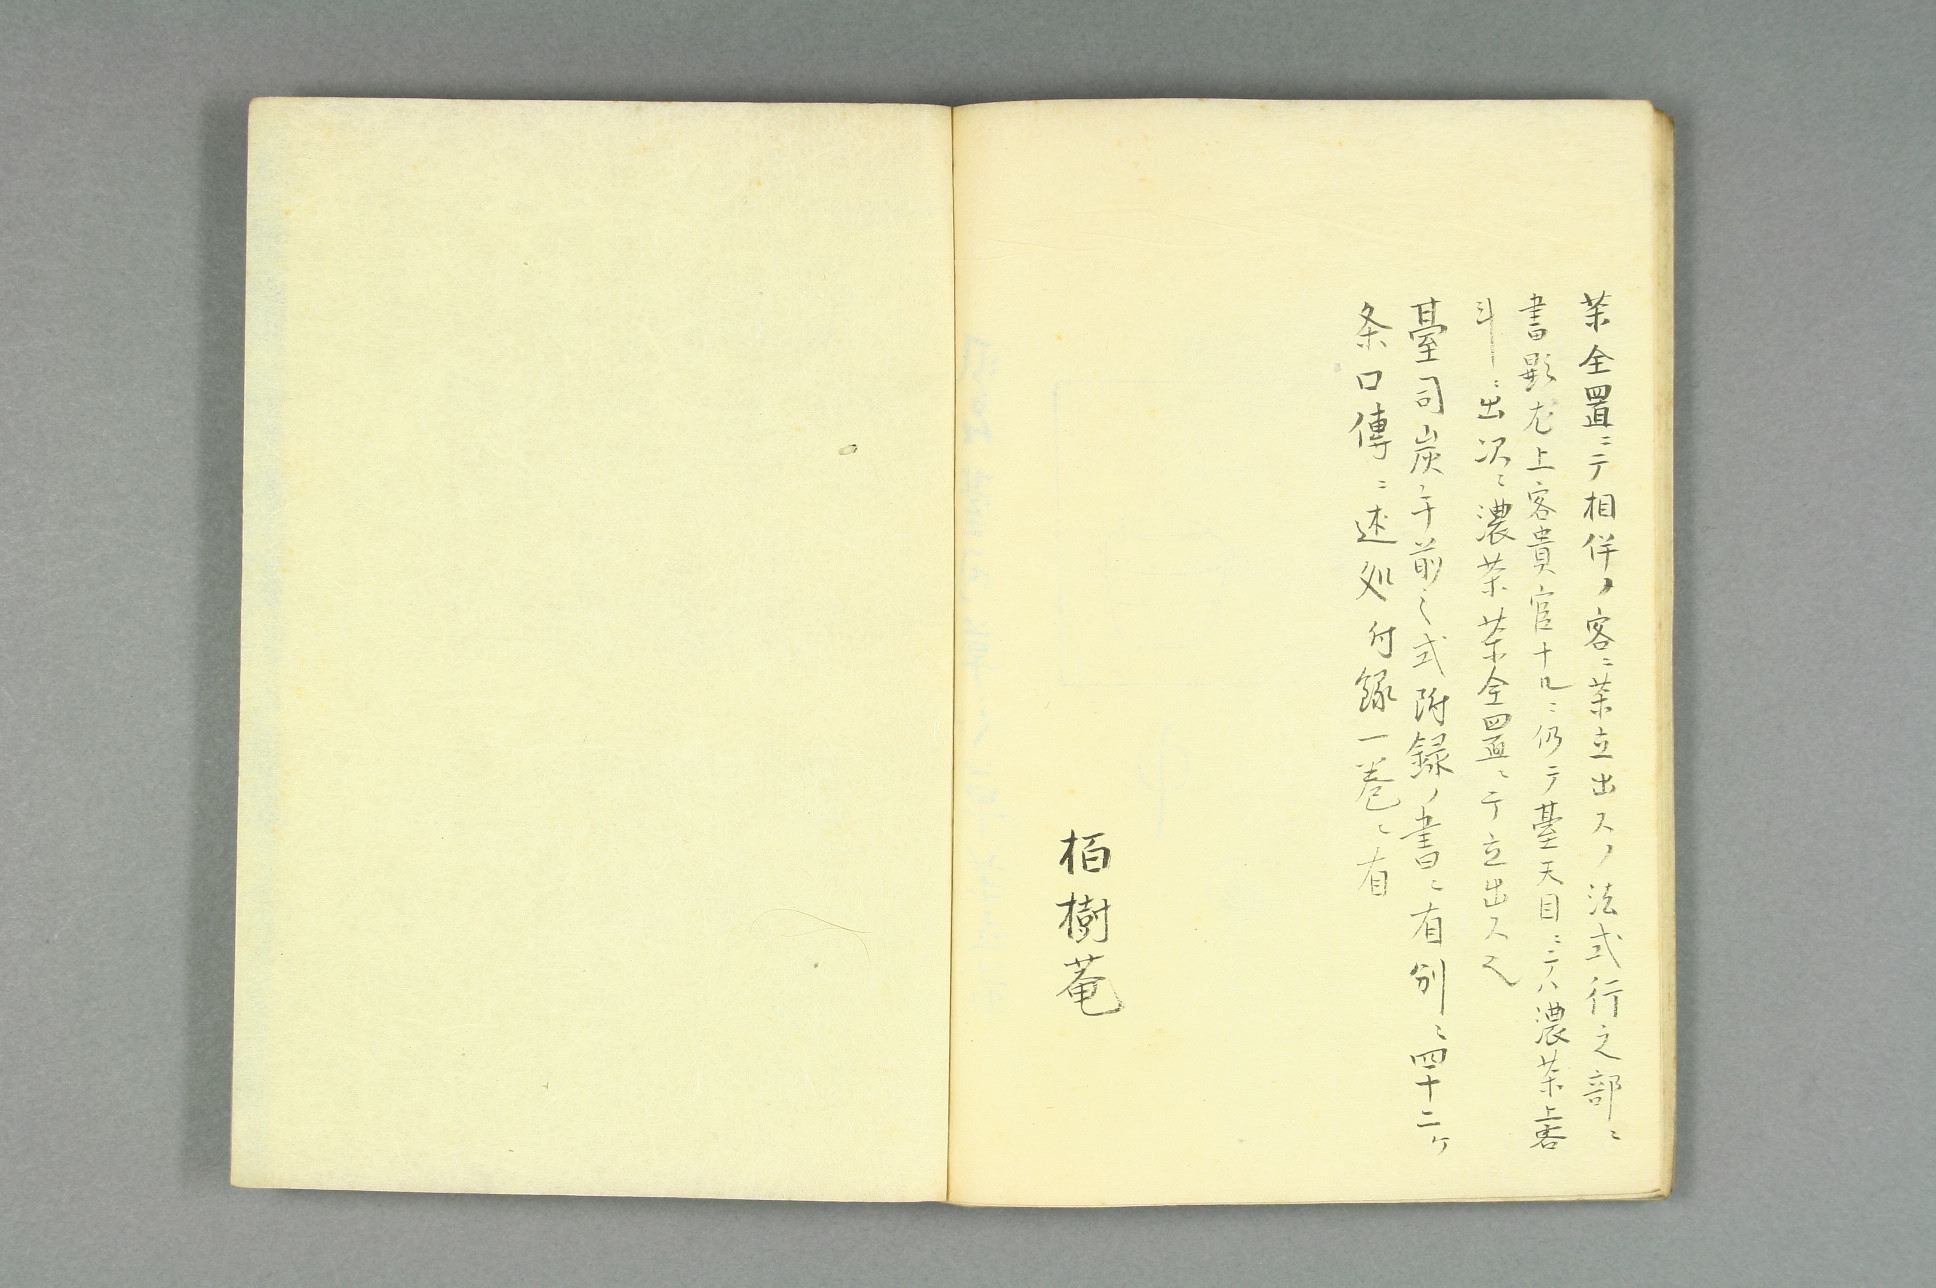 茶全置ニテ相伴ノ客ニ茶立出スノ法式行之部ニ
書顕尤上客貴官ナルニ仍テ臺天目ニテハ濃茶上客
斗ニ出次ニ濃茶茶全置ニテ立出ス也
臺司炭手前之式附録ノ書ニ有別ニ四十二ケ
条口傳ニ述処付録一巻ニ有
栢樹菴